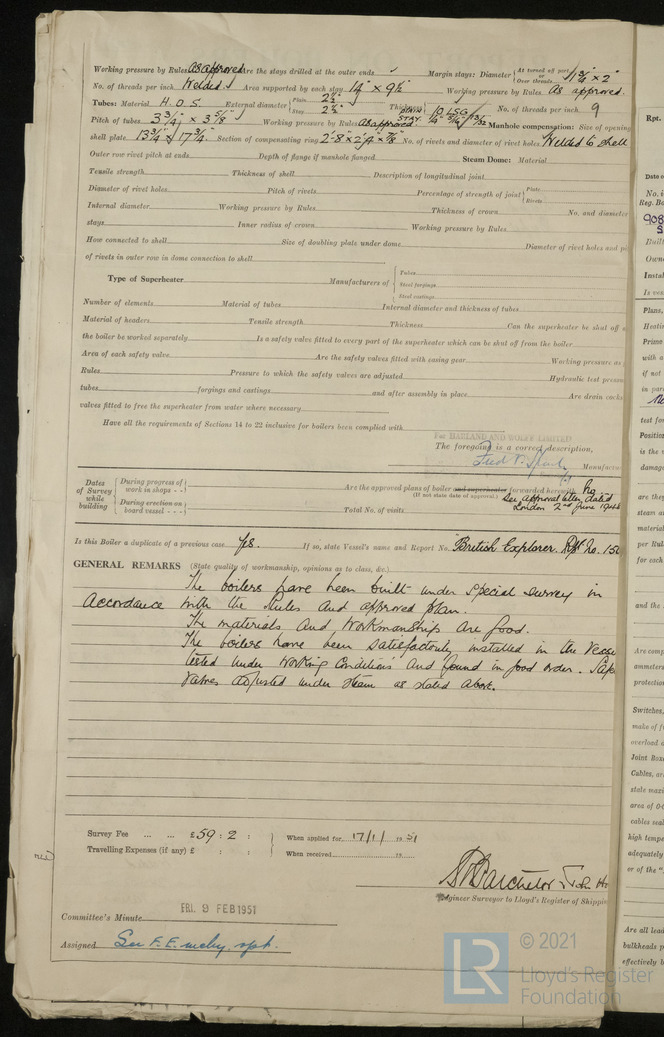 Working pressure by Rules As approved Are the stays drilled at the outer ends Margin stays: Diameter { At turned off part or Over threads 1¾" × 2"
No. of threads per inch Welded Area supported by each stay 14" × 9½" Working pressure by Rules As approved.
Tubes: Material H.O.S. External diameter { Plain 2½" Stay 2½" Thickness { PLAIN 10 LSG STAY No. of threads per inch 9
Pitch of tubes 3¾" × 3⅝" Working pressure by Rules As approved Manhole compensation: Size of opening
shell plate 13¾" × 17¾" Section of compensating ring No. of rivets and diameter of rivet holes Welded to shell
Outer row rivet pitch at ends Depth of flange if manhole flanged Steam Dome: Material
Tensile strength Thickness of shell Description of longitudinal joint
Diameter of rivet holes Pitch of rivets Percentage of strength of joint { Plate Rivets
Internal diameter Working pressure by Rules Thickness of crown No. and diameter
stays Inner radius of crown Working pressure by Rules
How connected to shell Size of doubling plate under dome Diameter of rivet holes and pi
of rivets in outer row in dome connection to shell
Type of Superheater Manufacturers of { Tubes Steel forgings Steel castings
Number of elements Material of tubes Internal diameter and thickness of tubes
Material of headers Tensile strength Thickness Can the superheater be shut off a
the boiler be worked separately Is a safety valve fitted to every part of the superheater which can be shut off from the boiler
Area of each safety valve Are the safety valves fitted with easing gear Working pressure as
Rules Pressure to which the safety valves are adjusted Hydraulic test press
tubes forgings and castings and after assembly in place Are drain cocks
valves fitted to free the superheater from water where necessary
Have all the requirements of Sections 14 to 22 inclusive for boilers been complied with
For HARLAND AND WOLFF LIMITED
The foregoing is a correct description,
Manufac
Dates of Survey while building { During progress of work in shops - - During erection on board vessel - - -
Are the approved plans of boiler and superheater forwarded herewith No
(If not state date of approval.) See approval letter dated
Total No. of visits London 2nd June 194
Is this Boiler a duplicate of a previous case Yes. If so, state Vessel's name and Report No. British Explorer. Rpt. No. 15
GENERAL REMARKS (State quality of workmanship, opinions as to class, &c.)
The boilers have been built under special survey in
accordance with the Rules and approved plan.
The materials and workmanship are good.
The boilers have been satisfactorily installed in the Vesse
tested under working conditions and found in good order. Safe
Valves adjusted under steam as stated above.
Survey Fee ... ... £59 : 2 : When applied for 17/1/ 1951
Travelling Expenses (if any) £ : : When received 19
S. Batchelor John H
Engineer Surveyor to Lloyd's Register of Shippin
FRI. 9 FEB 1951
Committee's Minute
Assigned See F.E. mchy. rpt.
© 2021
LR
Lloyd's Register
Foundation
Rpt.
Date o
No. i
Reg. Bo
908
Built
Owne
Instal
Is ves
Plans,
Heati
Prime
with a
if not
in par
No
test for
Position
is the v
damag
are they
steam a
material
per Rul
for each
and the
Are comp
ammeters
protection
Switches,
make of f
overload a
Joint Box
Cables, ar
stale maxi
area of 0·
cables seal
high tempe
adequately
er of the "
Are all lead
bulkheads p
effectively b